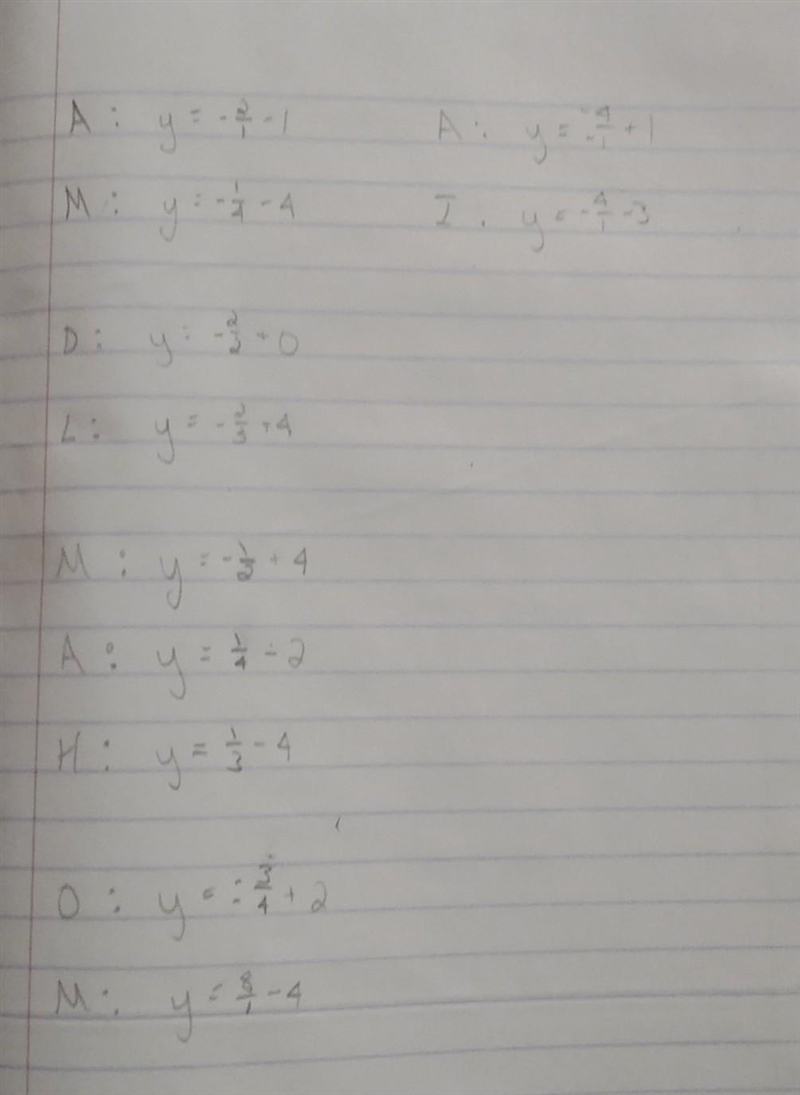 A: y = -2/1 - 1
M: y = -1/4 - 4
A: y = -4/-1 + 1
I. y = -4/1 - 3
D: y = -2/2 + 0
L: y = -2/3 + 4
M: y = -1/2 + 4
A: y = 1/4 - 2
H: y = 1/3 - 4
O: y = + 2
M: y = 8/1 - 4